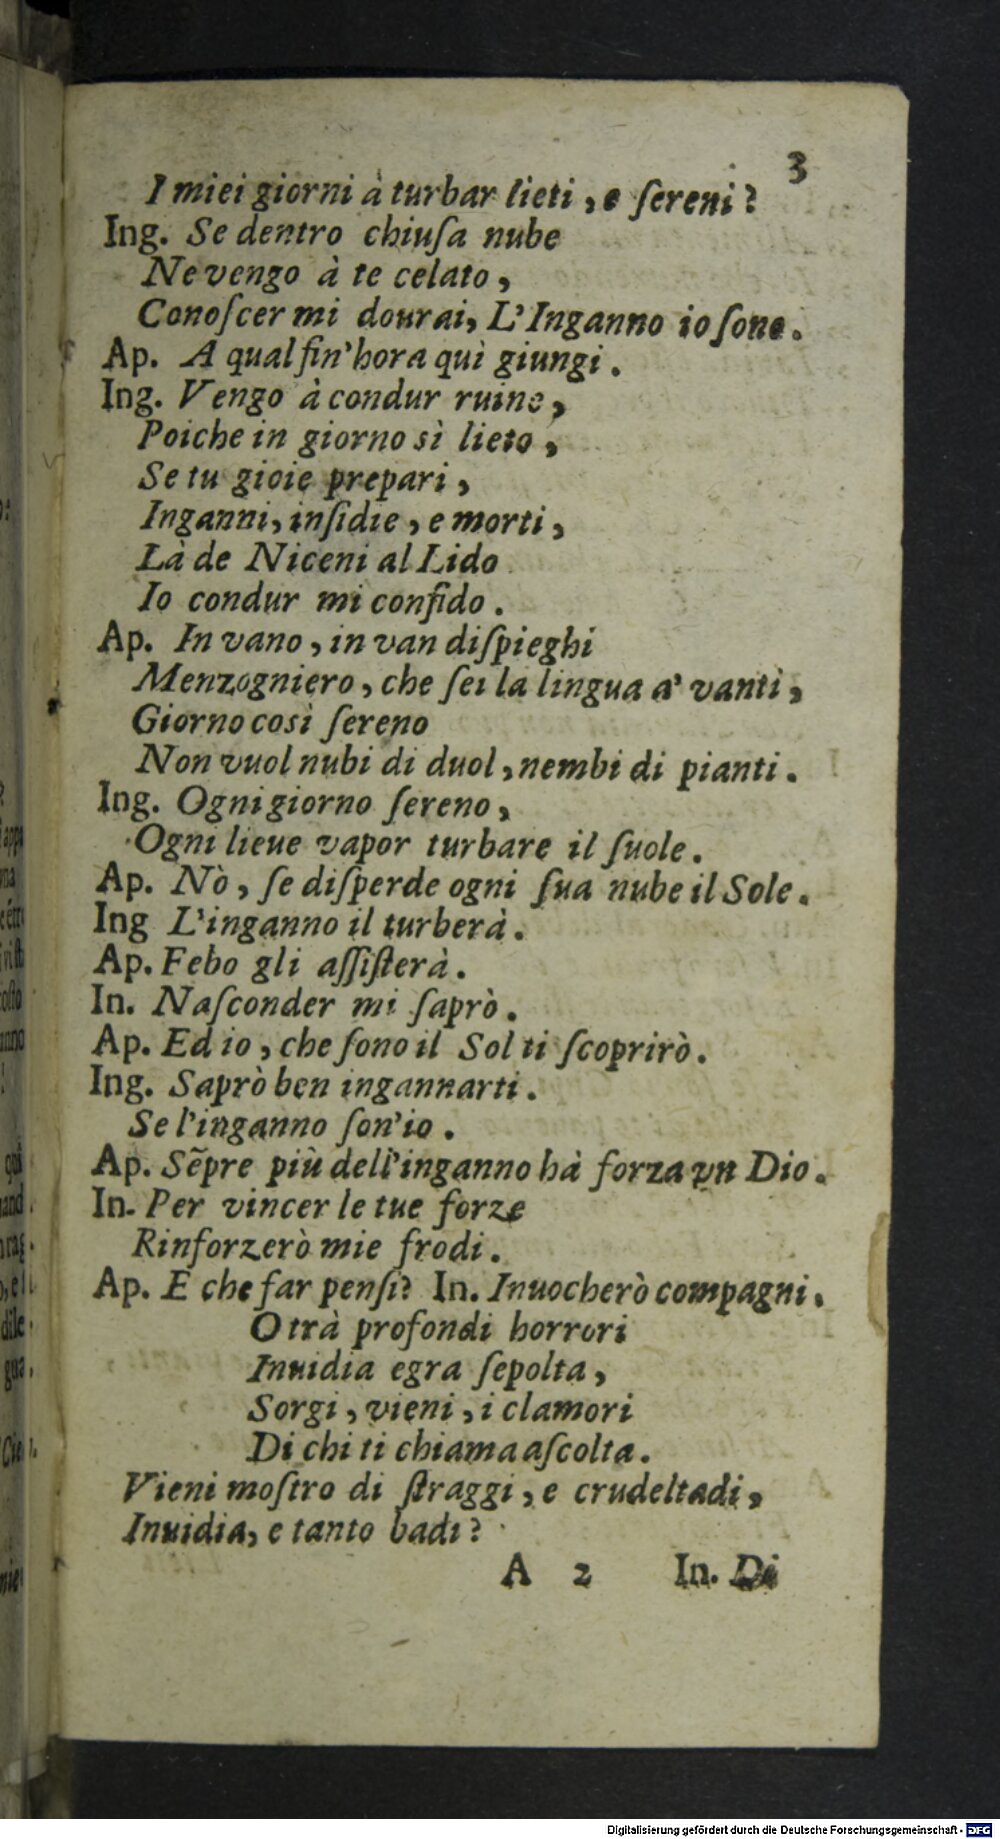 3
I miei giorni à turbar lieti, e ſereni?
Ing. Se dentro chiuſa nube
Ne vengo à te celato,
Conoſcer mi dourai, L'Inganno io ſono.
Ap. A qual fin' hora quì giungi.
Ing. Vengo à condur ruine,
Poiche in giorno sì lieto,
Se tu gioie prepari,
Inganni, inſidie, e morti,
Là de Niceni al Lido
Io condur mi confido.
Ap. In vano, in van diſpieghi
Menzogniero, che ſei la lingua a' vanti,
Giorno così ſereno
Non vuol nubi di duol, nembi di pianti.
Ing. Ogni giorno ſereno,
Ogni lieue vapor turbare il ſuole.
Ap. Nò, ſe diſperde ogni ſua nube il Sole.
Ing L'inganno il turberà.
Ap. Febo gli aſſiſterà.
In. Naſconder mi ſaprò.
Ap. Ed io, che ſono il Sol ti ſcoprirò.
Ing. Saprò ben ingannarti.
Se l'inganno ſon'io.
Ap. Sẽpre più dell'inganno hà forza vn Dio.
In. Per vincer le tue forze
Rinforzerò mie frodi.
Ap. E che far penſi? In. Inuocherò compagni.
O trà profondi horrori
Inuidia egra ſepolta,
Sorgi, vieni, i clamori
Di chi ti chiama aſcolta.
Vieni moſtro di ſtraggi, e crudeltadi,
Inuidia, e tanto badi?
A 2 In. Di
Digitalisierung gefördert durch die Deutsche Forschungsgemeinschaft - DFG